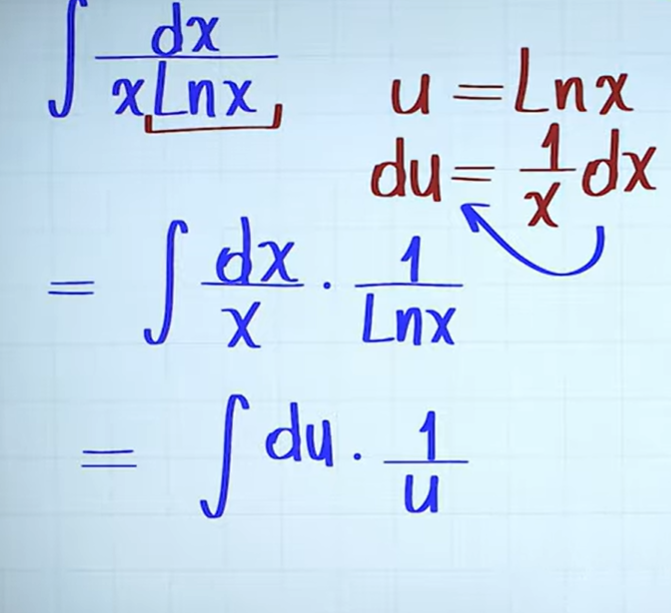 ∫ dx/(x Lnx)
u = Lnx
du = 1/x dx
= ∫ dx/x · 1/Lnx
= ∫ du · 1/u